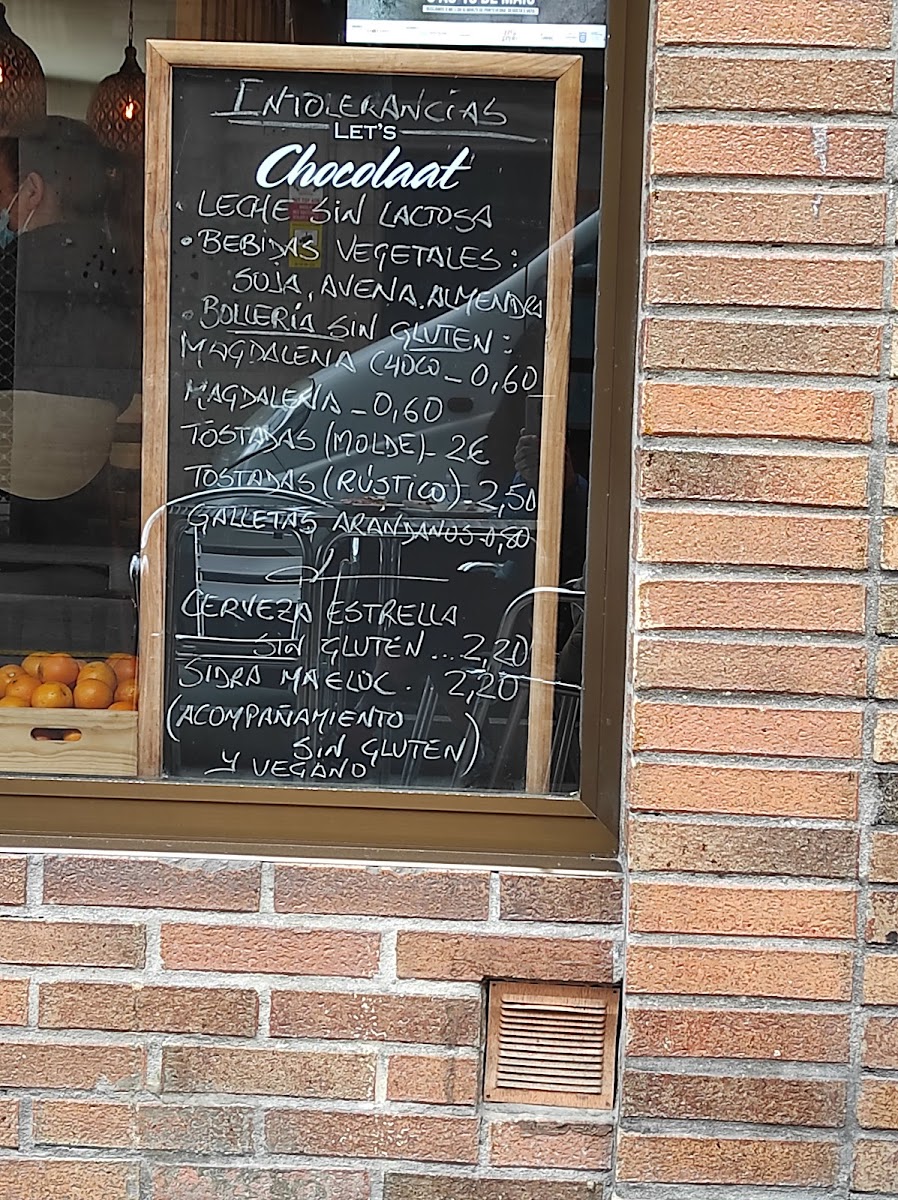 INTOLERANCIAS
LET'S
Chocolaat
LECHE SIN LACTOSA
• BEBIDAS VEGETALES:
SOJA, AVENA, ALMENDRA
• BOLLERÍA SIN GLUTEN:
MAGDALENA CHOCO - 0,60
MAGDALENA - 0,60
TOSTADAS (MOLDE) - 2€
TOSTADAS (RÚSTICO) - 2,50
GALLETAS ARANDANOS - 0,80
CERVEZA ESTRELLA
SIN GLUTEN ... 2,20
SIDRA MAELOC . 2,20
(ACOMPAÑAMIENTO
SIN GLUTEN)
Y VEGANO